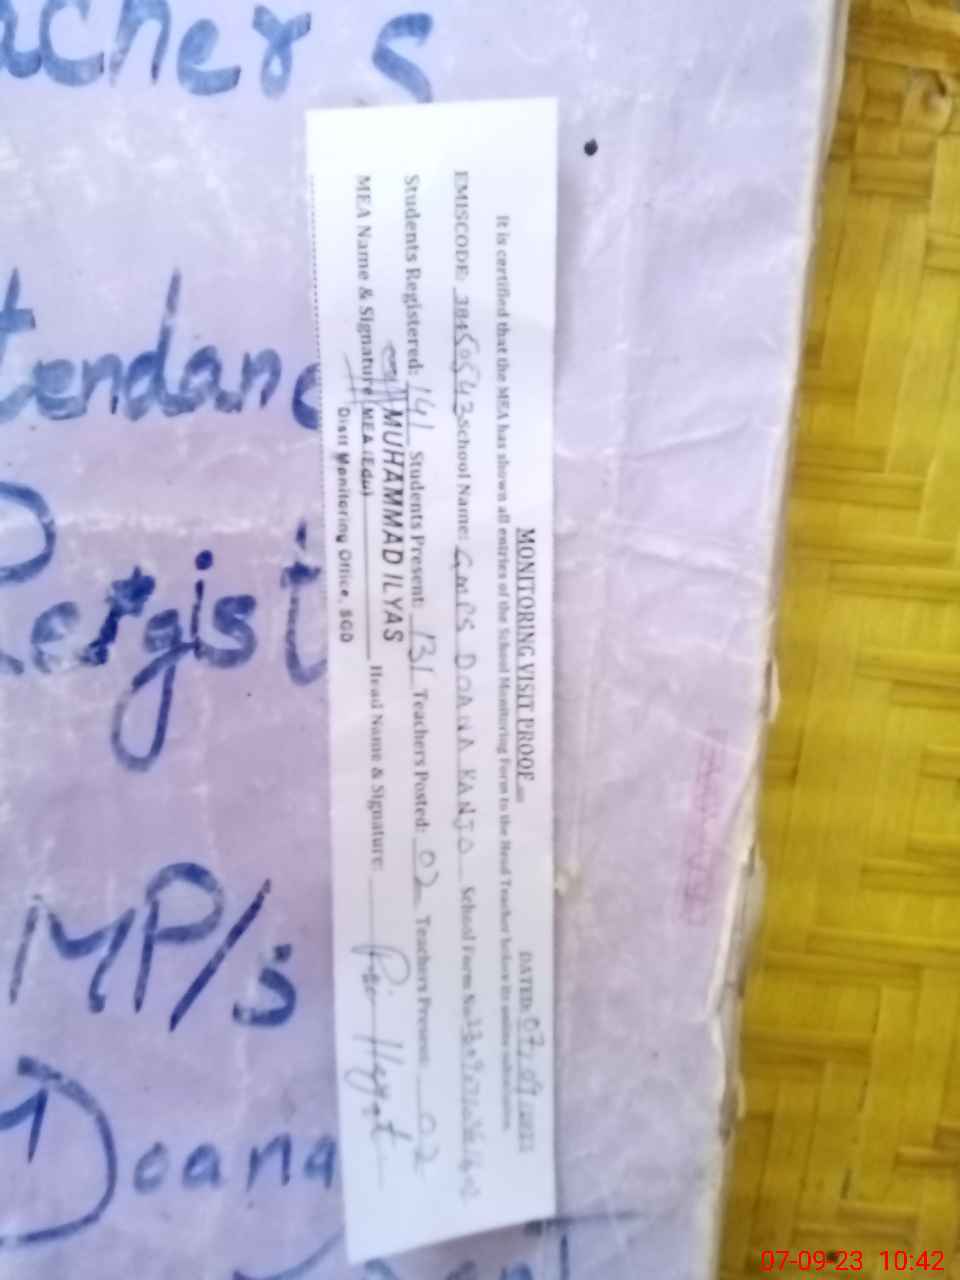 achers
tendanc
Regist
MP/s
Doana
MONITORING VISIT PROOF
DATED: 07, 09,
It is certified that the MEA has shown all entries of the School Monitoring Form to the Head Teacher before its online submission.
EMISCODE: 38450543 School Name: GMPS DOANA KANJO School Form No
Students Registered: 141 Students Present: 131 Teachers Posted: 02 Teachers Present: 02
MEA Name & Signature: MUHAMMAD ILYAS Head Name & Signature:
MEA (Edu)
Distt Monitoring Office, SGD
07-09-23 10:42